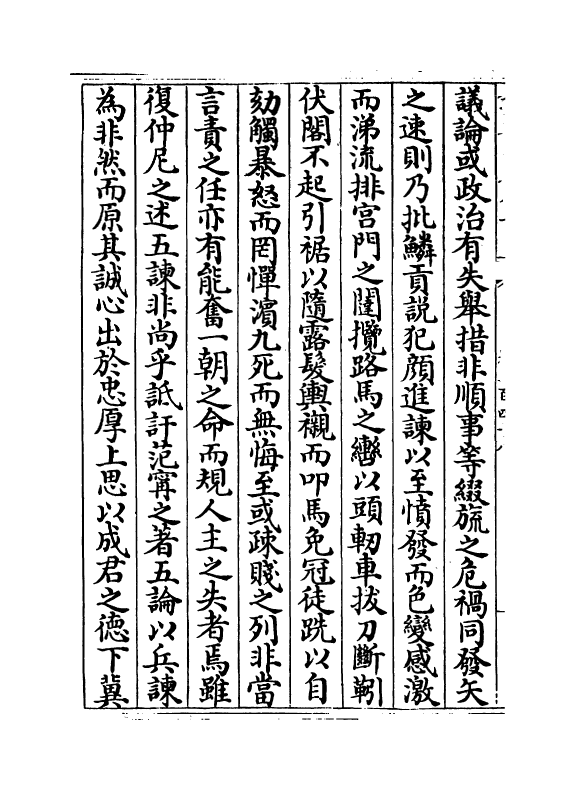 議論或政治有失舉措非順事等綴旒之危禍同發矢
之速則乃批鱗貢説犯顔進諫以至憤發而色變感激
而涕流排宫門之闥攬路馬之轡以頭軔車拔刀斷靷
伏閣不起引裾以隨露髮輿襯而叩馬免冠徒跣以自
劾觸暴怒而罔憚濵九死而無悔至或疎賤之列非當
言責之任亦有能奮一朝之命而規人主之失者焉雖
復仲尼之述五諫非尚乎詆訐范甯之著五論以兵諫
為非然而原其誠心出於忠厚上思以成君之德下冀